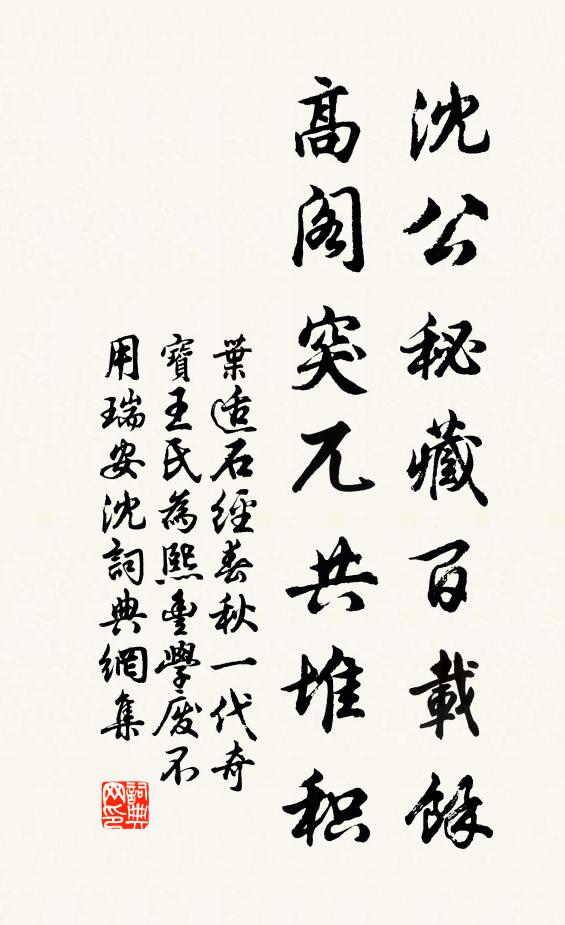 沈公秘藏百載餘
高阁突兀共堆积
葉适石經春秋一代奇
寶王氏為熙豊學廢不
用瑞安沈詞典網集
詞典网印